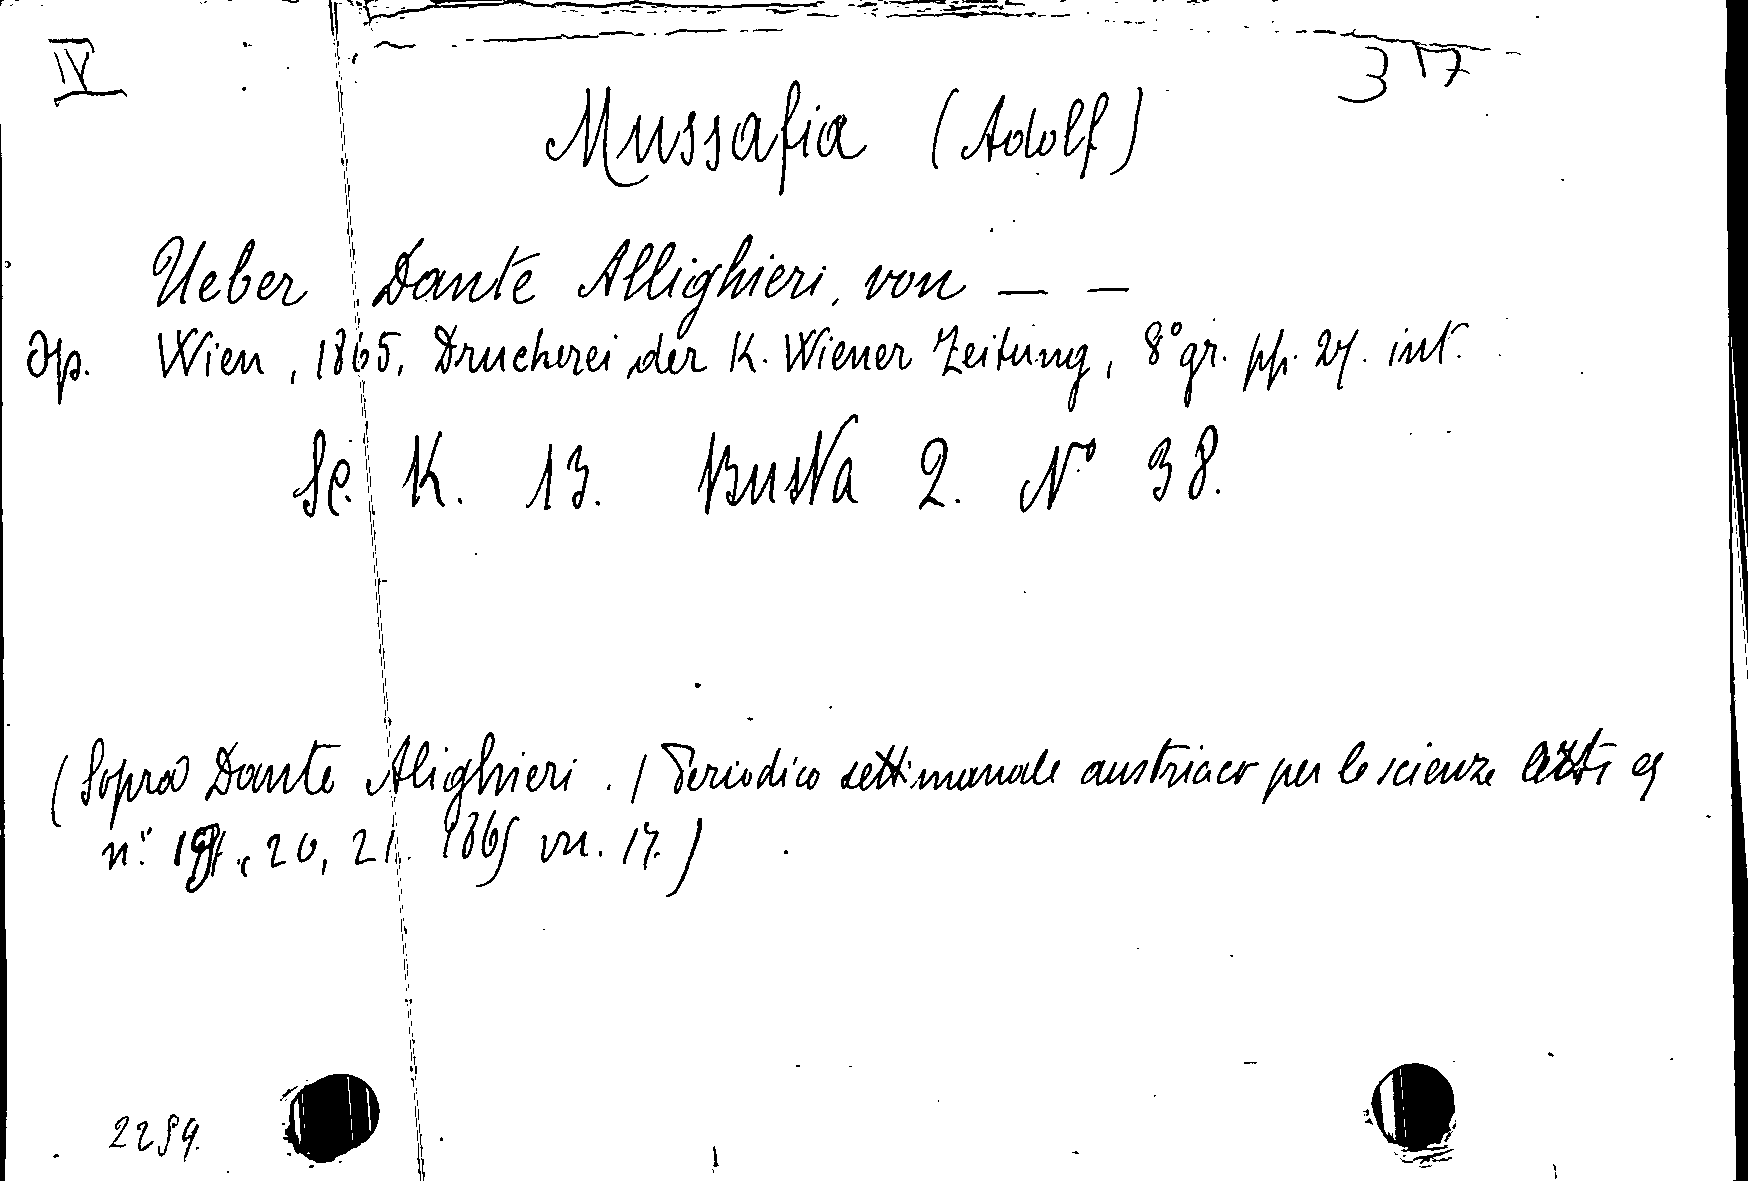 IV
317
Mussafia (Adolf)
Ueber Dante Allighieri, von — —
Op. Wien, 1865, Druckerei der K. Wiener Zeitung, 8° gr. pp. 27. int.
Sc. K. 13. Busta 2. N° 38.
(Sopra Dante Alighieri. / Periodico settimanale austriaco per le scienze
n.i 20, 21. 1865 17.)
2259.